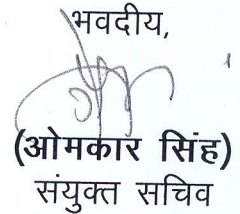 भवदीय,
(ओमकार सिंह)
संयुक्त सचिव